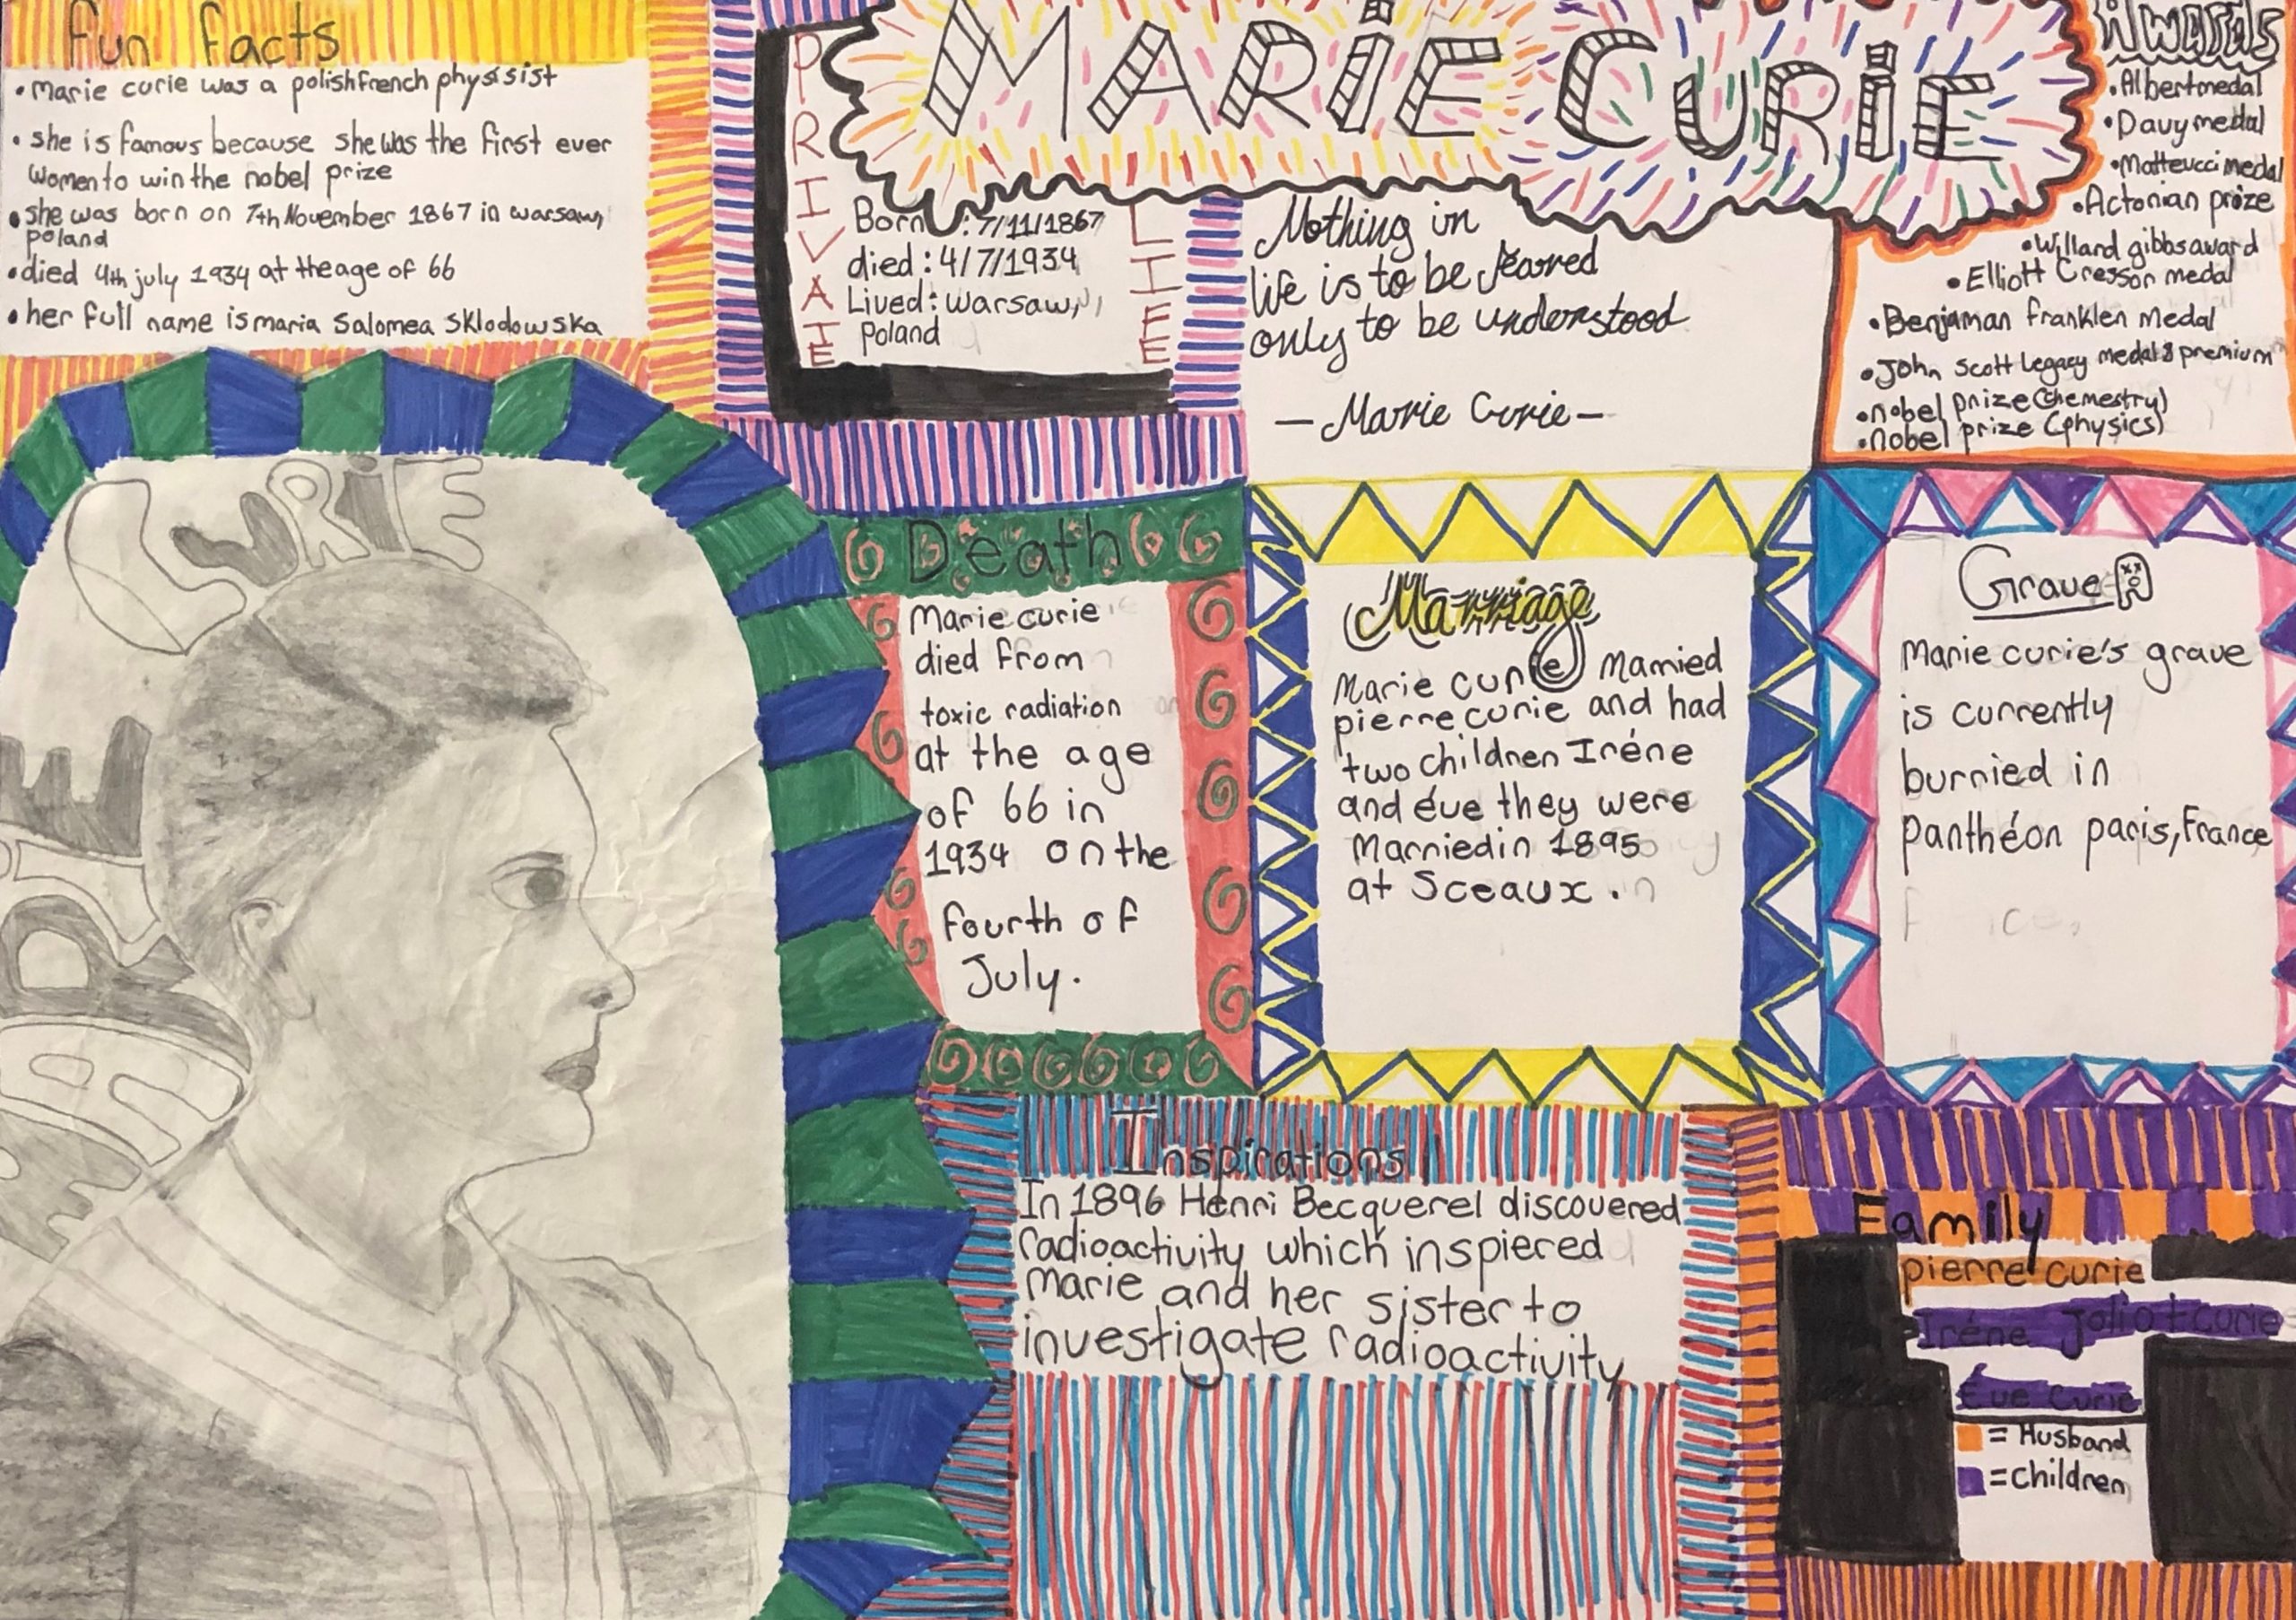 MARIE CURIE
Fun facts
• Marie curie was a polish french physisist
• she is famous because she was the first ever
women to win the nobel prize
• she was born on 7th November 1867 in warsaw,
poland
• died 4th july 1934 at the age of 66
• her full name is maria Salomea Sklodowska
PRIVATE
LIFE
Born : 7/11/1867
died : 4/7/1934
Lived : warsaw,
poland
Nothing in
life is to be feared
only to be understood
— Marie Curie —
Awards
• Albert medal
• Davy medal
• Matteucci medal
• Actonian prize
• Willard gibbs award
• Elliott Cressor medal
• Benjaman franklen medal
• John Scott Legacy medal & premium
• nobel prize (chemestry)
• nobel prize (physics)
MARIE
CURIE
Death
Marie curie
died from
toxic radiation
at the age
of 66 in
1934 on the
fourth of
July.
Marriage
Marie curie Married
pierre curie and had
two children Iréne
and éve they were
Married in 1895
at Sceaux.
Grave
Marie curie's grave
is currently
burried in
panthéon paris, France
Inspirations
In 1896 Henri Becquerel discovered
radioactivity which inspiered
marie and her sister to
investigate radioactivity
Family
pierre curie
Iréne Joliot curie
Éve curie
= Husband
= children